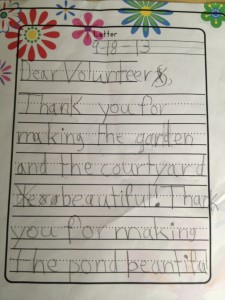 Letter
9-18-13
Dear Volunteers,
Thank you for
making the garden
and the courtyard
beautiful. Thank
you for making
the pond beantiful